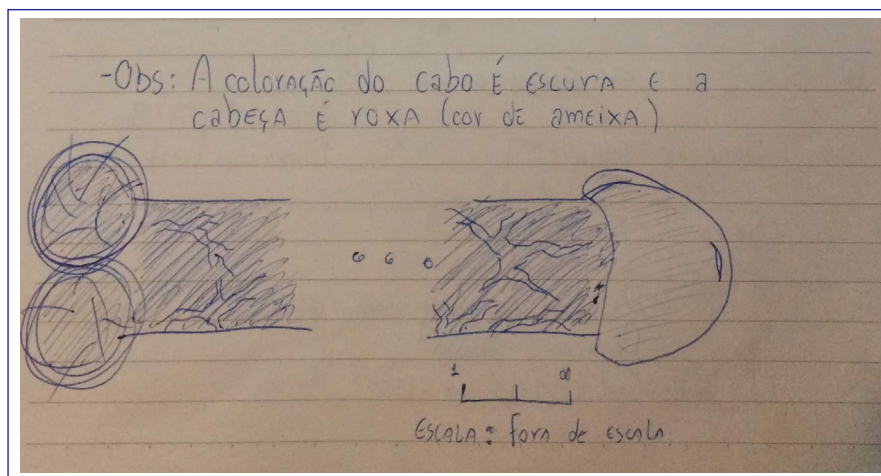 -Obs: A coloração do cabo é escura e a
cabeça é roxa (cor de ameixa)
1 ∞
Escala: fora de escala